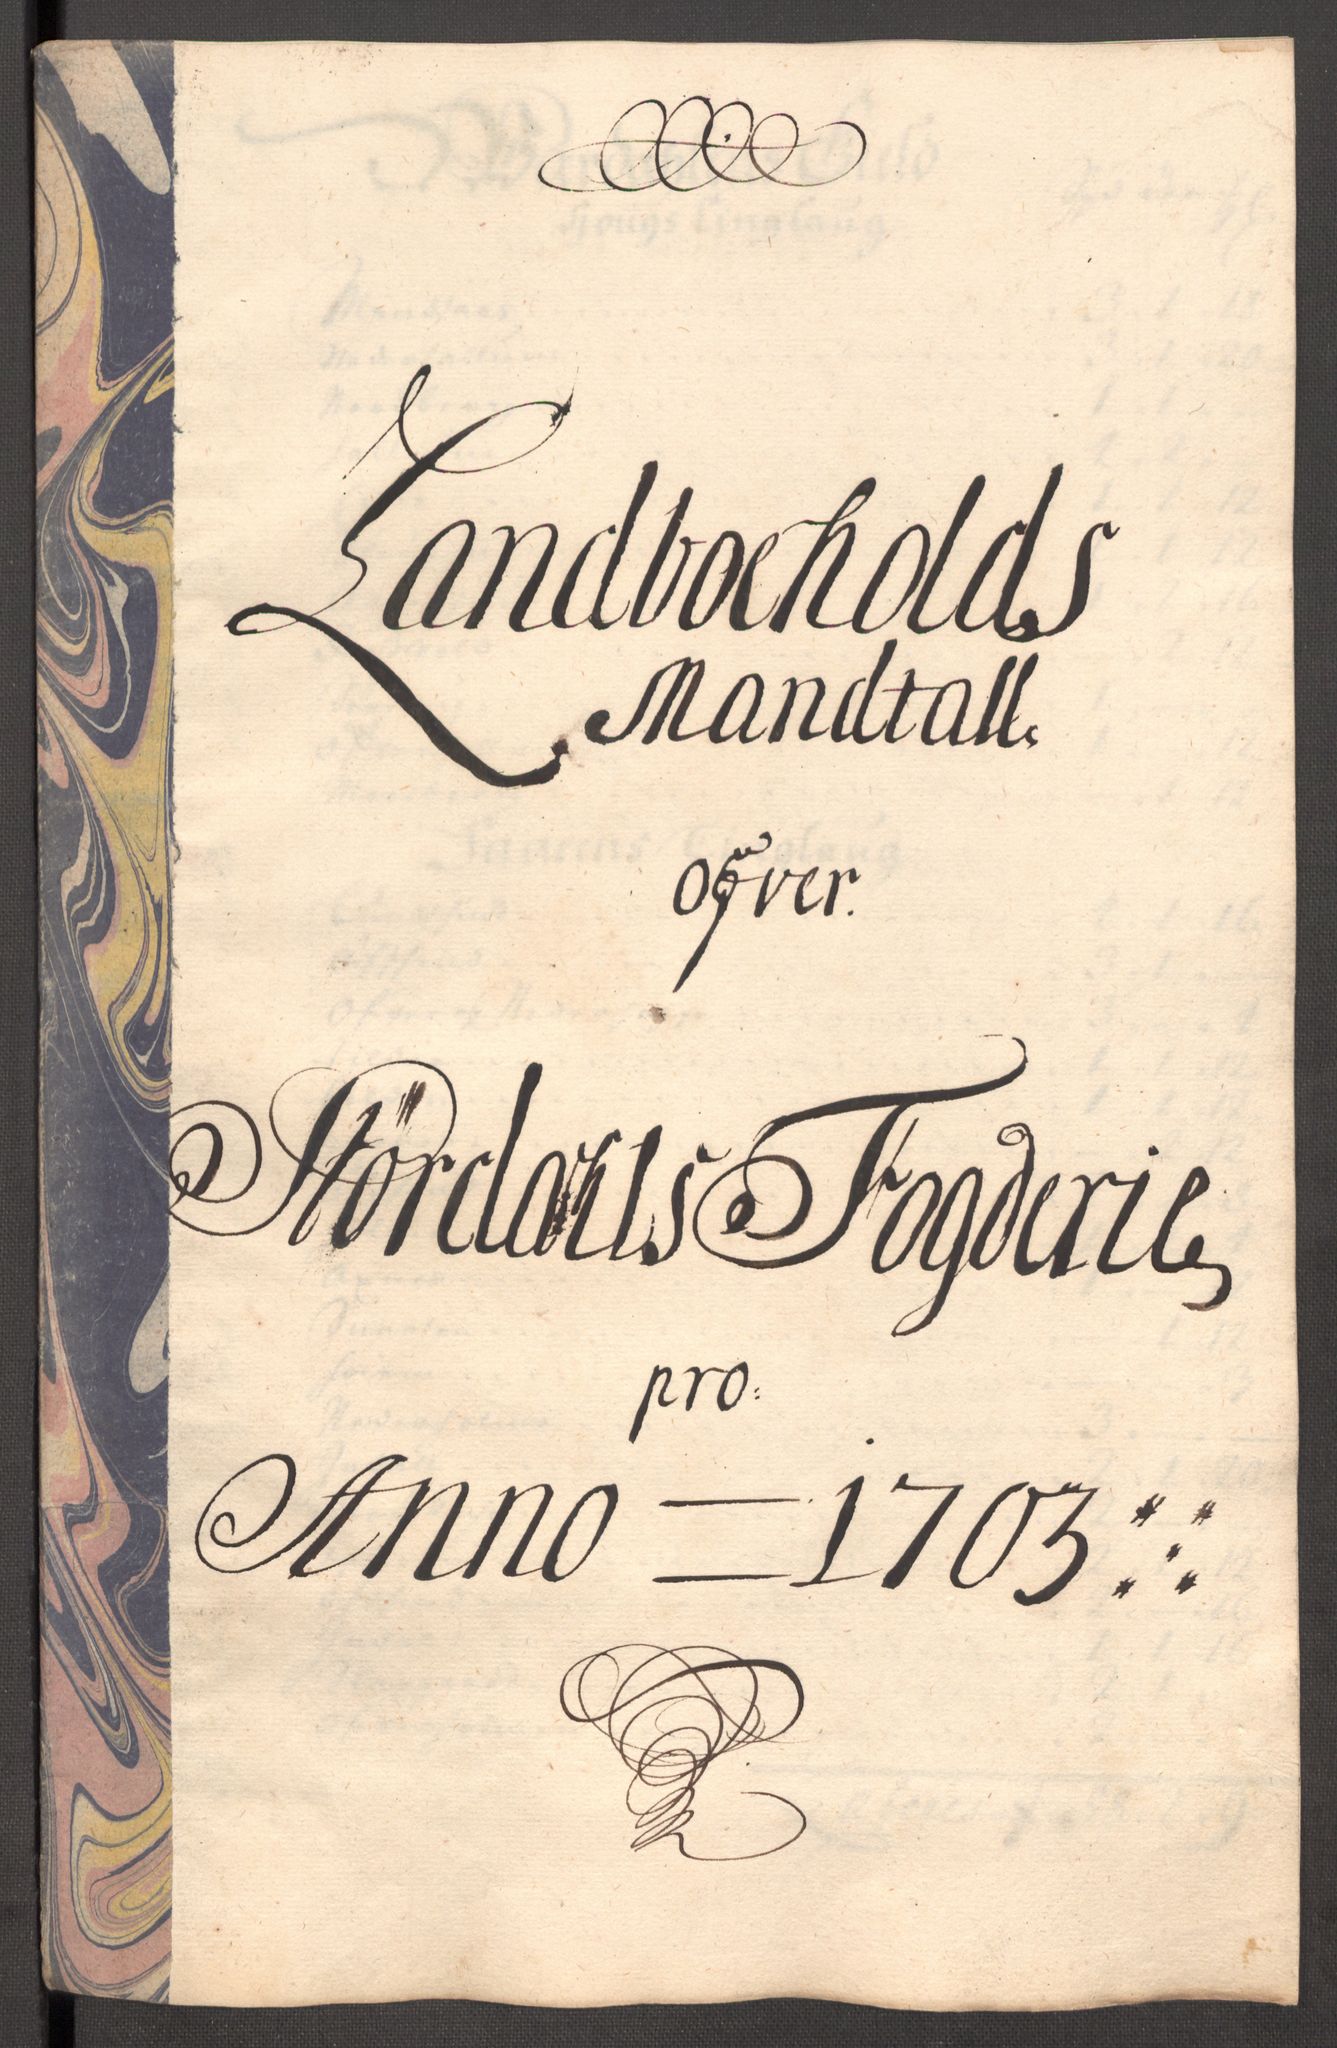 Landboeholds
Mandtall.
ofver.
Stördahls Fogderie,
pro.
Anno = 1703